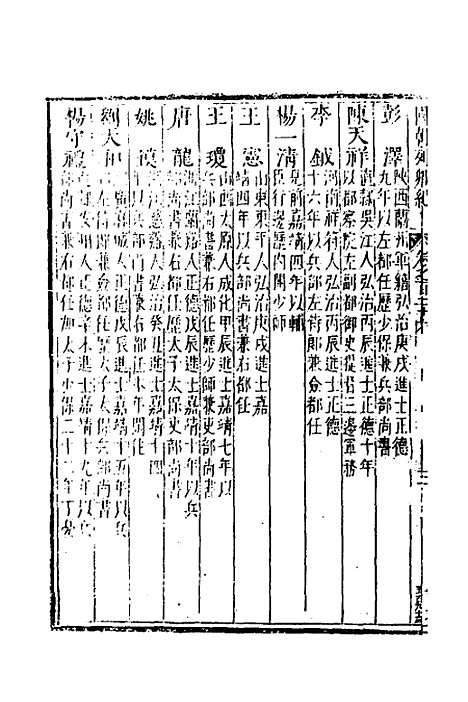 國朝列卿紀
彭澤陝西蘭州軍籍弘治庚戌進士正德
九年以左都任歷少保兼兵部尚書
陳天祥直隸吳江人弘治丙辰進士正德十年
以都察院左副都御史提督三邊軍務
李鉞河南祥符人弘治丙辰進士正德
十六年以兵部左侍郎兼僉都任
楊一清見前嘉靖四年以輔
臣行邊歷內閣少師
王憲山東東平人弘治庚戌進士嘉
靖四年以兵部尚書兼右都任
王瓊山西太原人成化甲辰進士嘉靖七年以
兵部尚書兼右都任歷少師兼吏部尚書
唐龍浙江蘭谿人正德戊辰進士嘉靖十年以兵
部尚書兼右都任歷太子太保吏部尚書
姚鏌浙江慈谿人弘治癸丑進士嘉靖十四
年以兵部尚書兼右都任本年閒住
劉天和湖廣麻城人正德戊辰進士嘉靖十五年以兵
部左侍郎兼僉都任歷太子太保兵部尚書
楊守禮人正德辛未進士嘉靖十九年以兵
部尚書兼右都任加太子少保二十二年丁